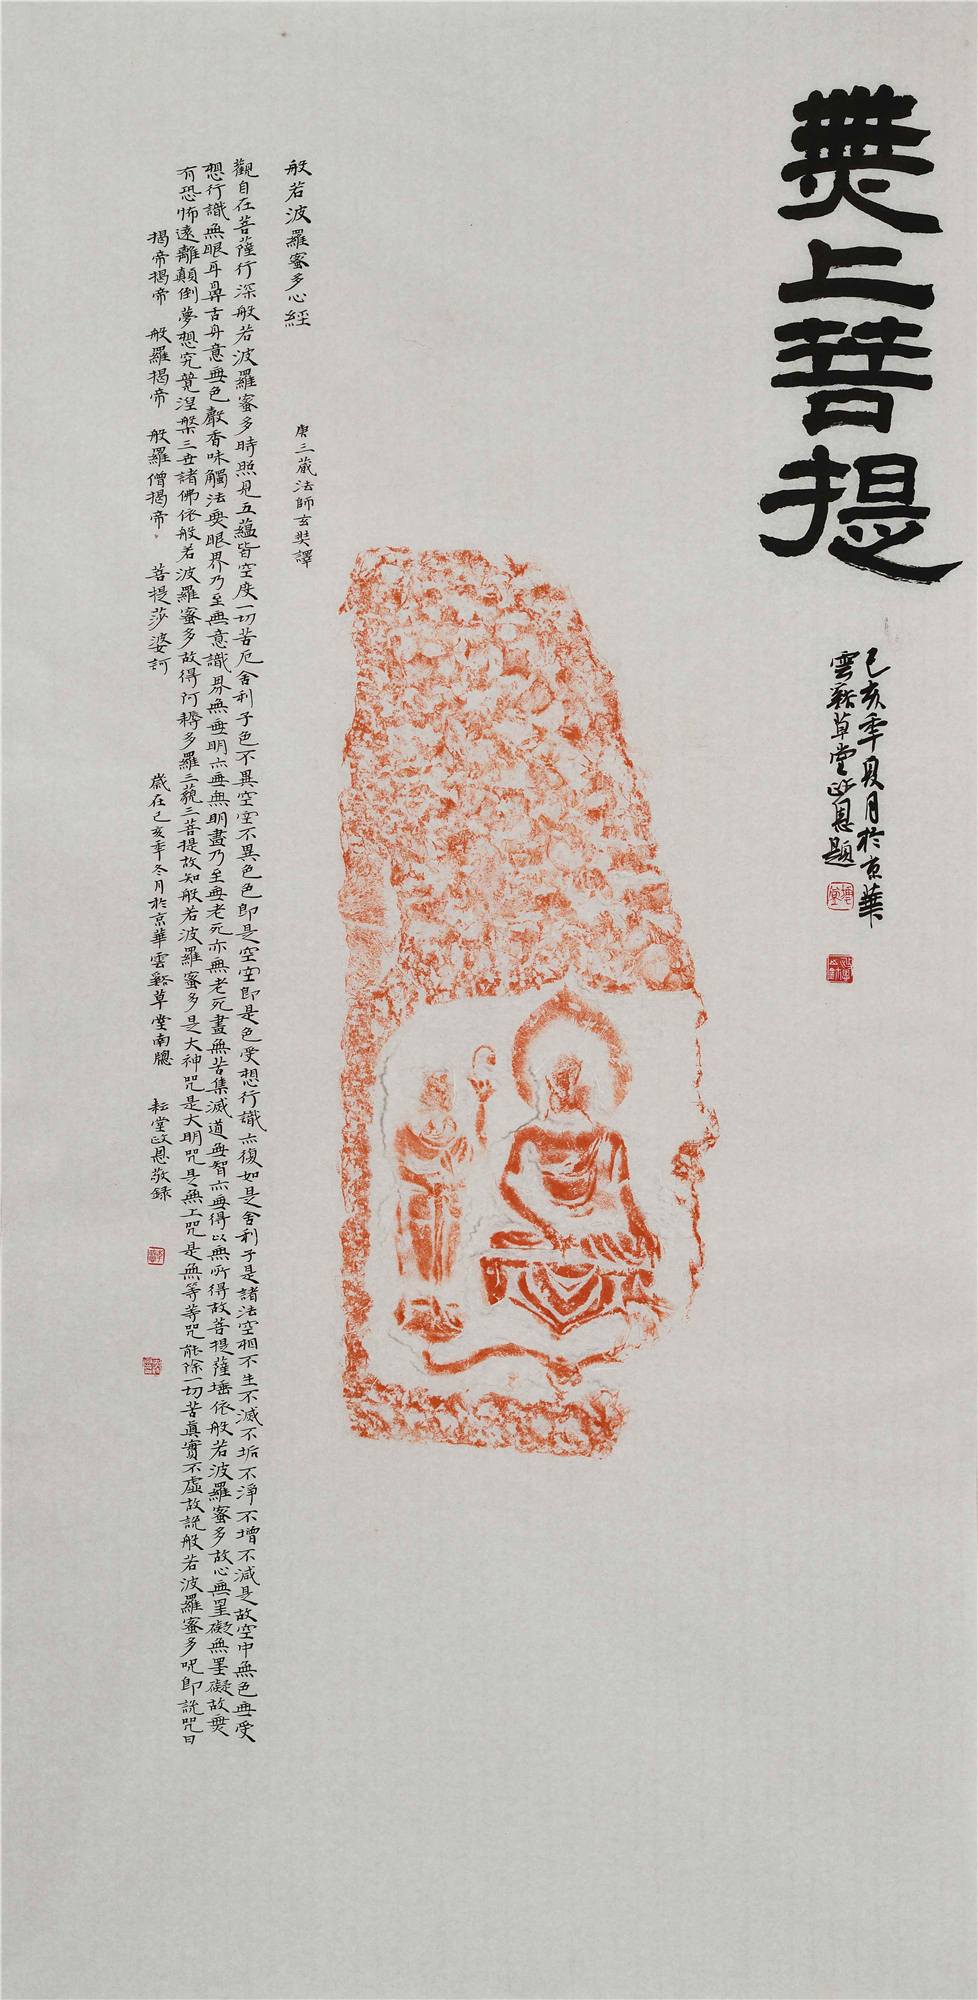 無上菩提
己亥年夏月於京華
雲谿草堂政恩題
般若波羅蜜多心經
唐三藏法師玄奘譯
觀自在菩薩行深般若波羅蜜多時照見五蘊皆空度一切苦厄舍利子色不異空空不異色色即是空空即是色受想行識亦復如是舍利子是諸法空相不生不滅不垢不淨不增不減是故空中無色無受
想行識無眼耳鼻舌身意無色聲香味觸法無眼界乃至無意識界無無明亦無無明盡乃至無老死亦無老死盡無苦集滅道無智亦無得以無所得故菩提薩埵依般若波羅蜜多故心無罣礙無罣礙故無
有恐怖遠離顛倒夢想究竟涅槃三世諸佛依般若波羅蜜多故得阿耨多羅三藐三菩提故知般若波羅蜜多是大神咒是大明咒是無上咒是無等等咒能除一切苦真實不虛故說般若波羅蜜多咒即說咒曰
揭帝揭帝 般羅揭帝 般羅僧揭帝 菩提莎婆訶 歲在己亥年冬月於京華雲谿草堂南牕 耘堂政恩敬録